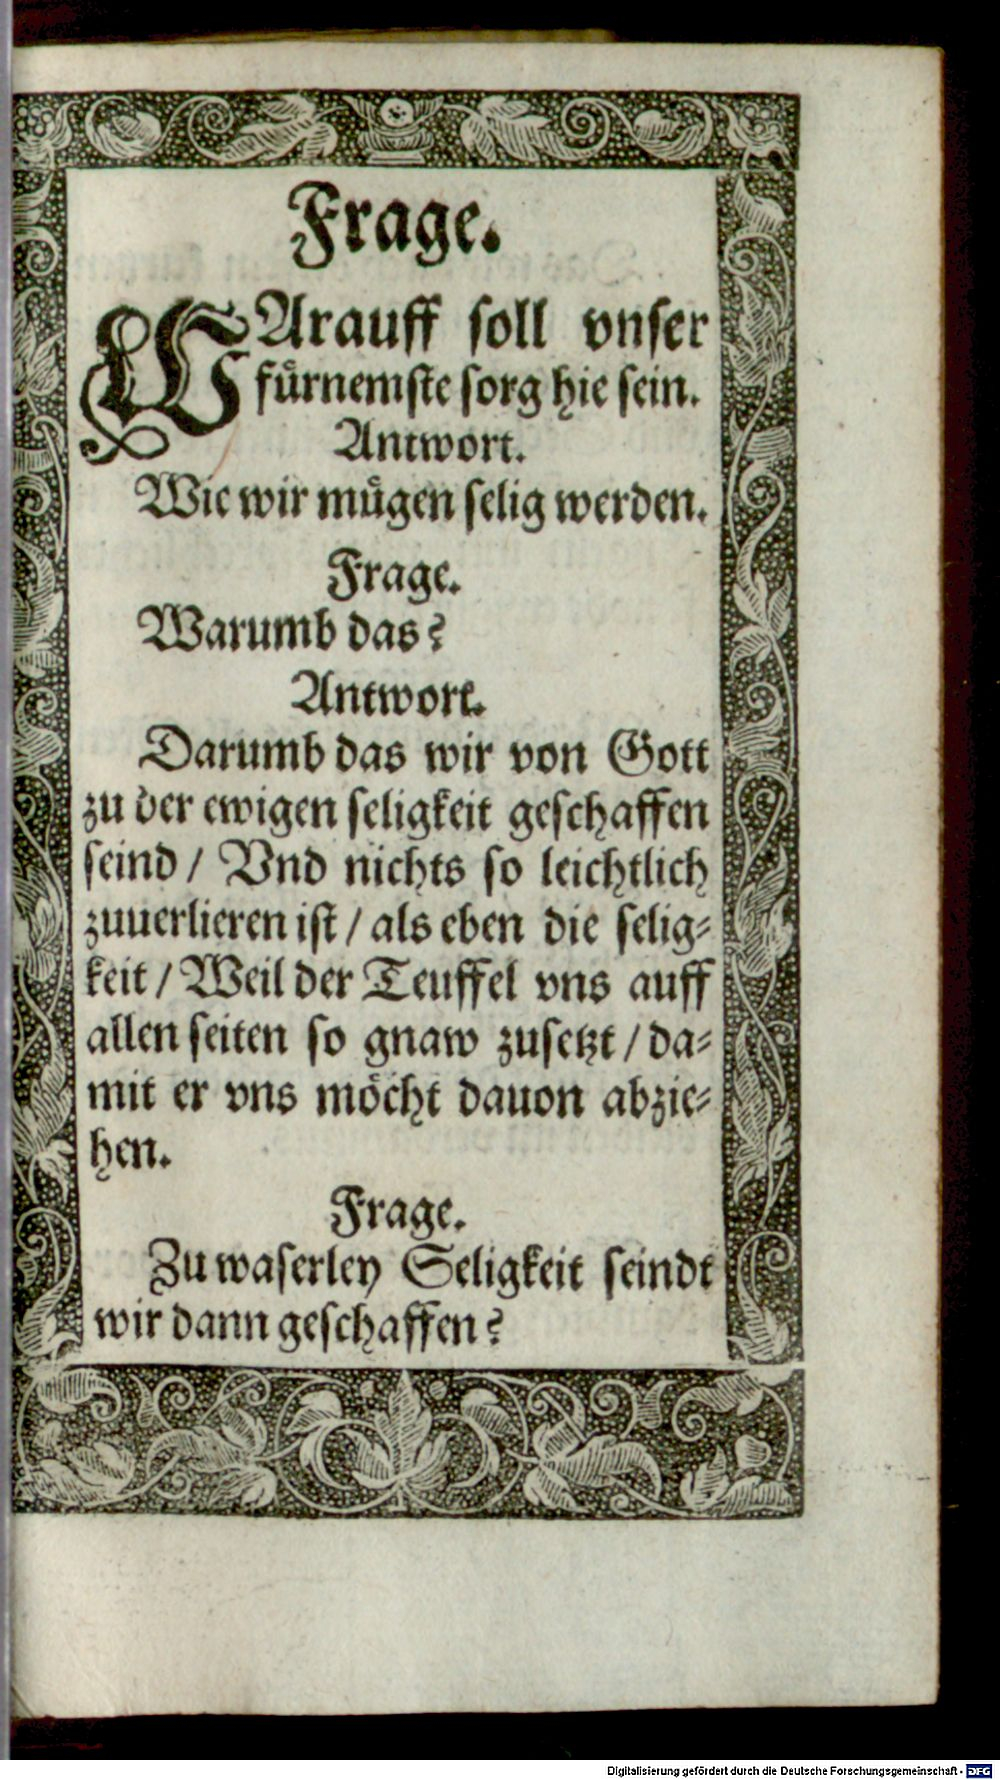 Frage.
WArauff soll vnser
fürnemste sorg hie sein.
Antwort.
Wie wir mügen selig werden.
Frage.
Warumb das?
Antwort.
Darumb das wir von Gott
zu der ewigen seligkeit geschaffen
seind / Vnd nichts so leichtlich
zuuerlieren ist / als eben die selig-
keit / Weil der Teuffel vns auff
allen seiten so gnaw zusetzt / da-
mit er vns möcht dauon abzie-
hen.
Frage.
Zu waserley Seligkeit seindt
wir dann geschaffen?
Digitalisierung gefördert durch die Deutsche Forschungsgemeinschaft - DFG